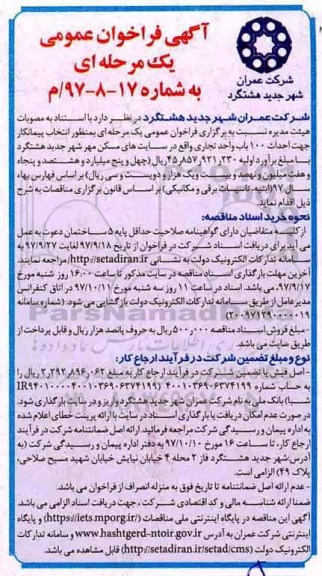 شرکت عمران
شهر جدید هشتگرد
آگهی فراخوان عمومی
یک مرحله ای
به شماره ۱۷-۸-۹۷/م
شرکت عمران شهر جدید هشتگرد در نظر دارد با استناد به مصوبات
هیئت مدیره نسبت به برگزاری فراخوان عمومی یک مرحله ای بمنظور انتخاب پیمانکار
جهت احداث ۱۰۰ باب واحد تجاری واقع در سایت های مسکن مهر شهر جدید هشتگرد
با مبلغ برآورد اولیه ۴۵٫۸۵۷٫۹۲۱٫۲۳۰ ریال (چهل و پنج میلیارد و هشتصد و پنجاه
و هفت میلیون و نهصد و بیست ویک هزار و دویست و سی ریال) بر اساس فهارس بهاء
سال ۹۷ (ابنیه، تاسیسات برقی و مکانیکی) بر اساس قانون برگزاری مناقصات به شرح
ذیل اقدام نماید.
نحوه خرید اسناد مناقصه:
از کلیه متقاضیان دارای گواهینامه صلاحیت حداقل پایه ۵ ساختمان دعوت به عمل
می آید برای دریافت اسناد شرکت در فراخوان از تاریخ ۹۷/۹/۱۸ لغایت ۹۷/۹/۲۷ به
سامانه تدارکات الکترونیک دولت به نشانی http://setadiran.ir مراجعه نمایند.
آخرین مهلت بارگذاری اسناد مناقصه در سایت مذکور تا ساعت ۱۶:۰۰ روز شنبه مورخ
می باشد. اسناد در ساعت ۱۱ روز سه شنبه مورخ ۹۷/۱۰/۱۱ در اتاق کنفرانس
مدیرعامل از طریق سامانه تدارکات الکترونیک دولت بازگشایی می شود. (شماره سامانه
- مبلغ فروش اسناد مناقصه ۵۰۰٫۰۰۰ ریال به حروف پانصد هزار ریال و قابل پرداخت از
طریق سایت می باشد.
نوع و مبلغ تضمین شرکت در فرآیند ارجاع کار:
- اصل فیش یا تضمین شرکت در فرآیند ارجاع کار به مبلغ ۲٫۲۹۲٫۸۹۶٫۰۶۲ ریال
به حساب شماره ۴۰۰۱۰۳۶۹۰۶۳۷۴۱۹۹
شبا) بانک ملی به نام شرکت عمران شهر جدید هشتگرد واریز و در سایت بارگذاری شود.
در صورت عدم امکان دریافت یا بارگذاری اسناد در سایت با ارائه پرینت خطای اعلام شده
به اداره پیمان و رسیدگی شرکت مراجعه فرمائید. ارائه اصل ضمانتنامه شرکت در فرآیند
ارجاع کار، تا ساعت ۱۶ مورخ ۹۷/۱۰/۱۰ به دفتر اداره پیمان و رسیدگی شرکت (به
آدرس: شهر جدید هشتگرد فاز ۲ محله ۴ خیابان نیایش خیابان شهید مسیح صلاحی،
پلاک ۴۹) الزامی است.
- عدم ارائه اصل ضمانتنامه تا تاریخ فوق به منزله انصراف از فراخوان می باشد.
ضمنا ارائه شناسه مالی و کد اقتصادی شرکت، جهت دریافت اسناد الزامی می باشد.
آگهی این مناقصه در پایگاه اینترنتی ملی مناقصات (https://iets.mporg.ir) و پایگاه
اینترنتی شرکت عمران به آدرس www.hashtgerd-ntoir.gov.ir و سامانه تدارکات
الکترونیک دولت (http://setadiran.ir/setad/cms) قابل مشاهده می باشد.